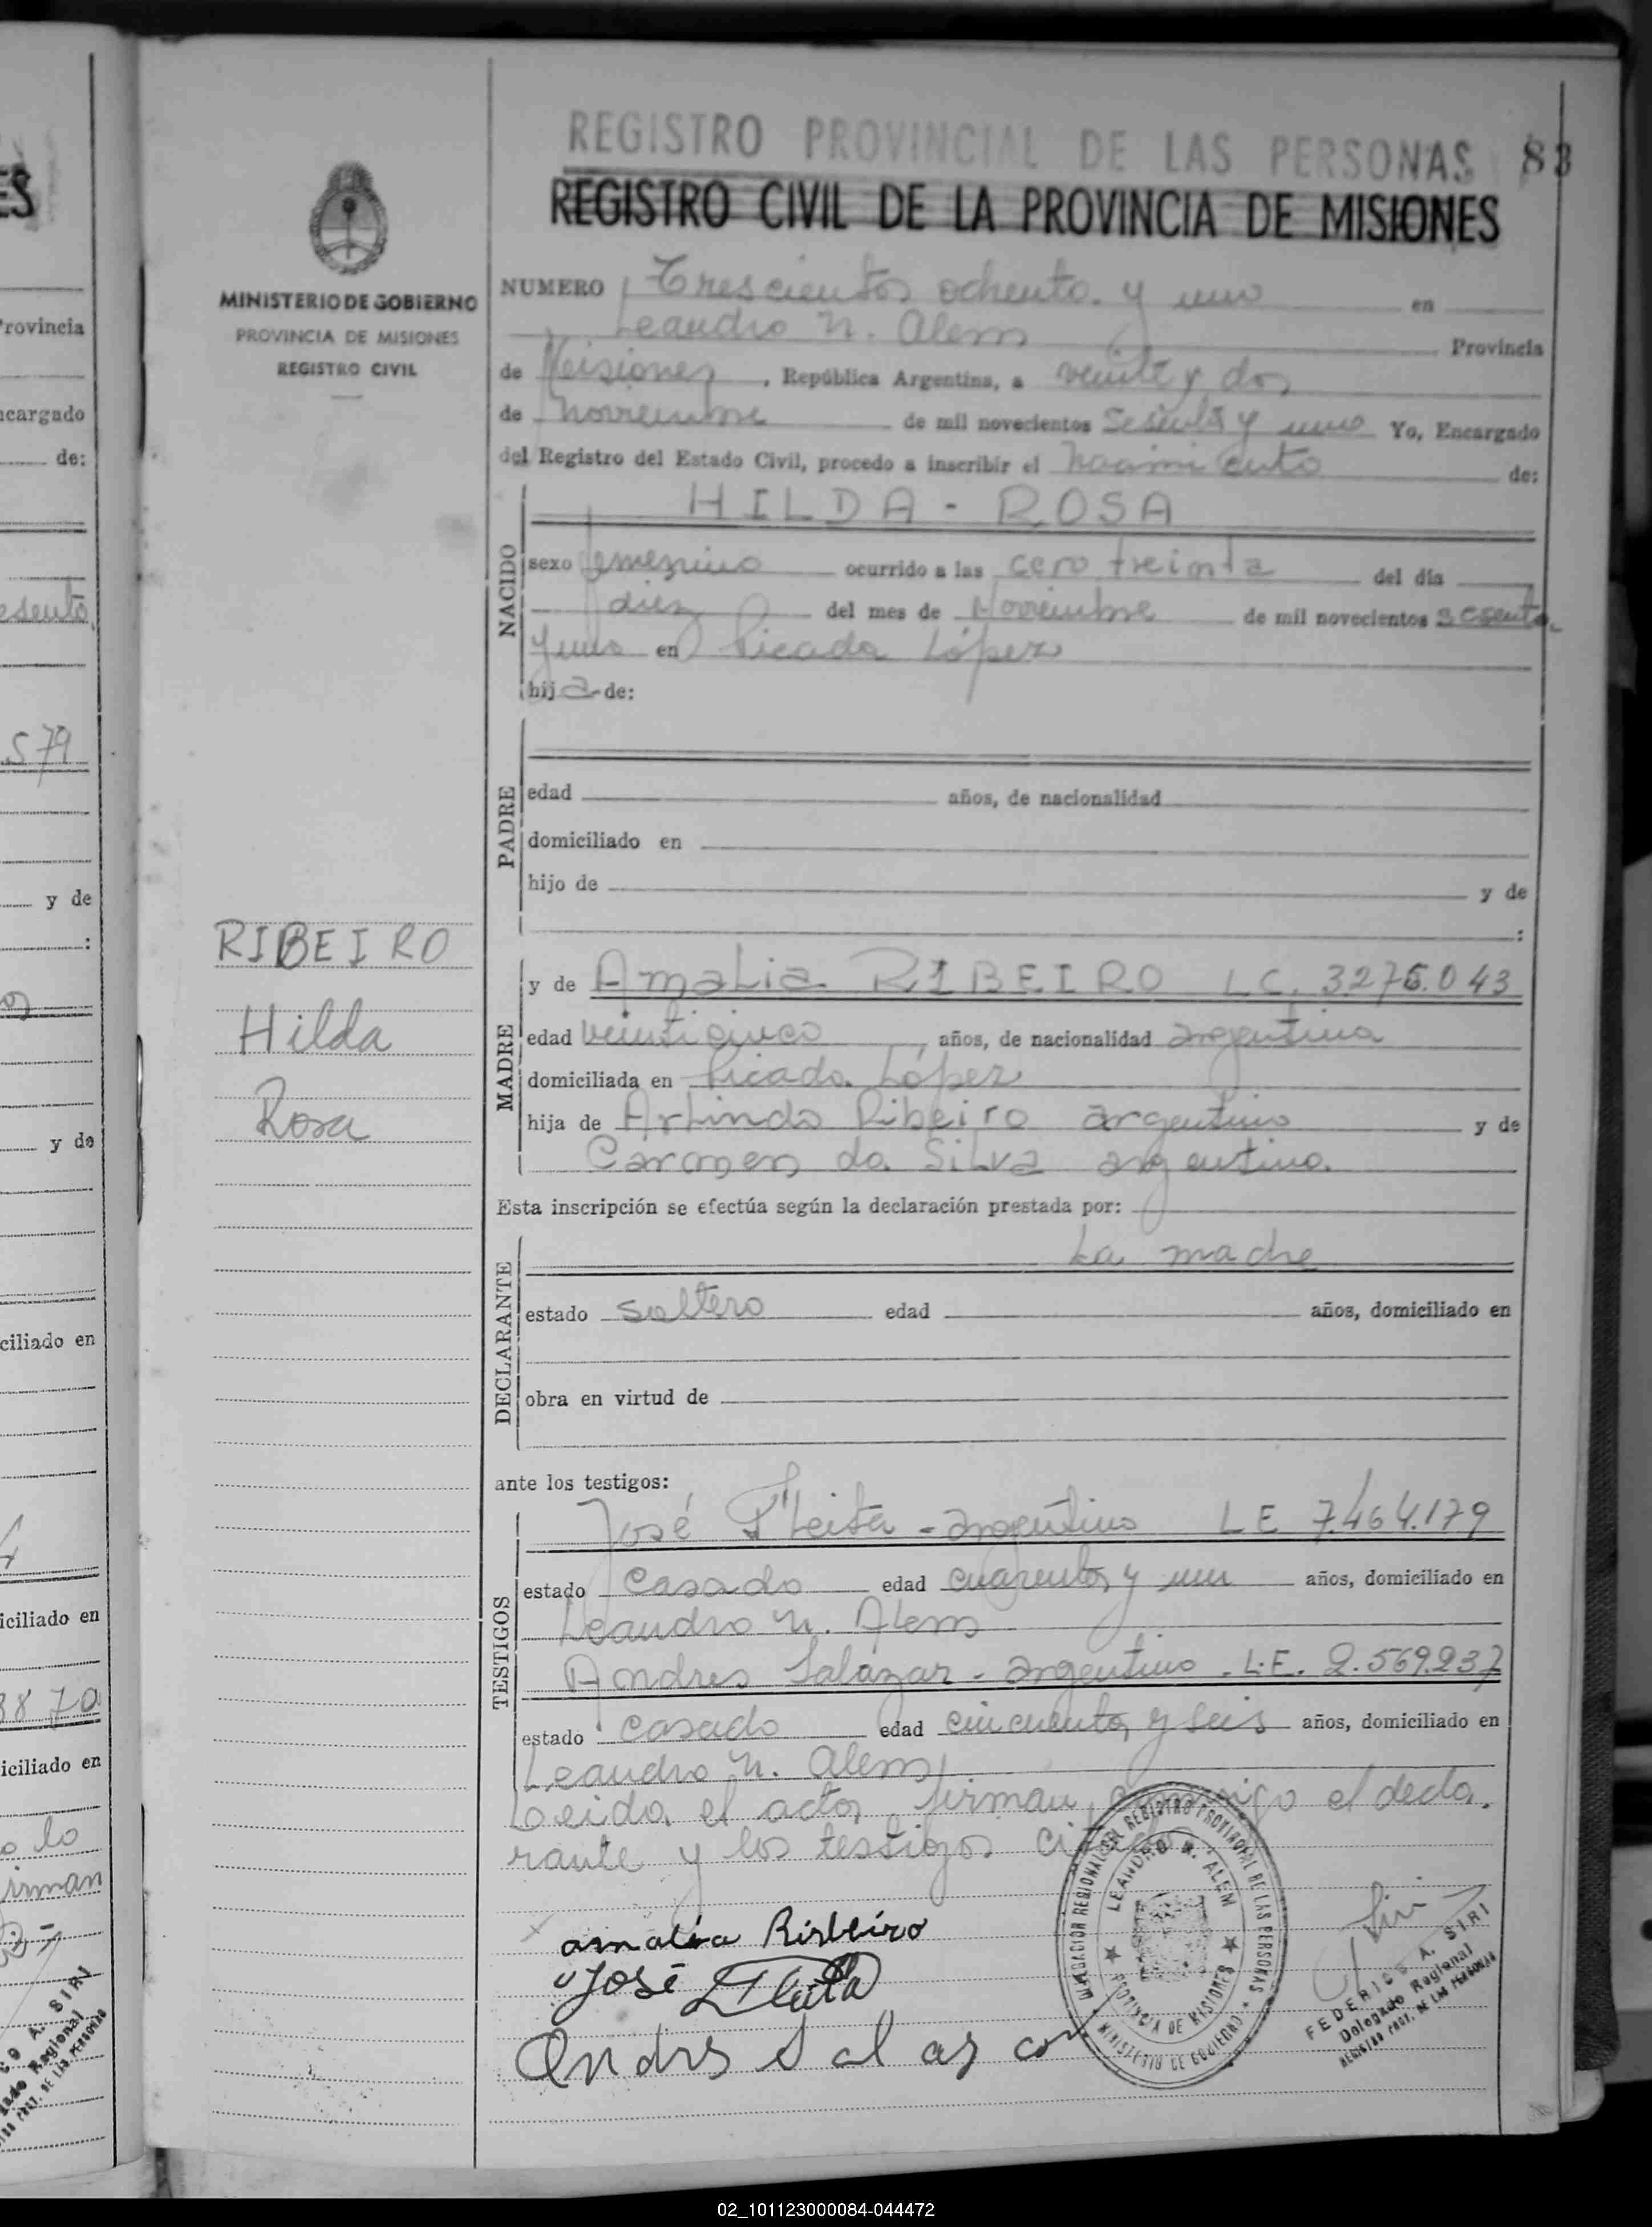 REGISTRO PROVINCIAL DE LAS PERSONAS 83
REGISTRO CIVIL DE LA PROVINCIA DE MISIONES
MINISTERIO DE GOBIERNO
PROVINCIA DE MISIONES
REGISTRO CIVIL
NUMERO Trescientos ochenta y uno en
Leandro N. Alem Provincia
de Misiones, República Argentina, a veinte y dos
de Noviembre de mil novecientos Sesenta y uno Yo, Encargado
del Registro del Estado Civil, procedo a inscribir el nacimiento de:
NACIDO
HILDA - ROSA
sexo femenino ocurrido a las cero treinta del día
diez del mes de Noviembre de mil novecientos sesenta
y uno en Picada López
hija de:
PADRE
edad años, de nacionalidad
domiciliado en
hijo de y de
:
RIBEIRO
Hilda
Rosa
MADRE
y de Amalia RIBEIRO LC. 3276.043
edad veinticinco, años, de nacionalidad argentina
domiciliada en Picada López
hija de Arlindo Ribeiro argentino y de
Carmen da Silva argentina.
Esta inscripción se efectúa según la declaración prestada por:
DECLARANTE
La madre
estado soltero edad años, domiciliado en
obra en virtud de
ante los testigos:
TESTIGOS
José Fleita - argentino LE 7.464.179
estado casado edad cuarenta y un años, domiciliado en
Leandro N. Alem
Andres Salazar - argentino. L.E. 2.569.237
estado casado edad cincuenta y seis años, domiciliado en
Leandro N. Alem
Leida el acta, firman conmigo el decla.
rante y los testigos citados
amalia Ribeiro
José Fleita
Andrs Salazar
DELEGACION REGIONAL DEL REGISTRO PROVINCIAL DE LAS PERSONAS
LEANDRO N. ALEM
PROVINCIA DE MISIONES
MINISTERIO DE GOBIERNO
FEDERICO A. SIRI
Delegado Regional
REGISTRO PROV. DE LAS PERSONAS
02_101123000084-044472